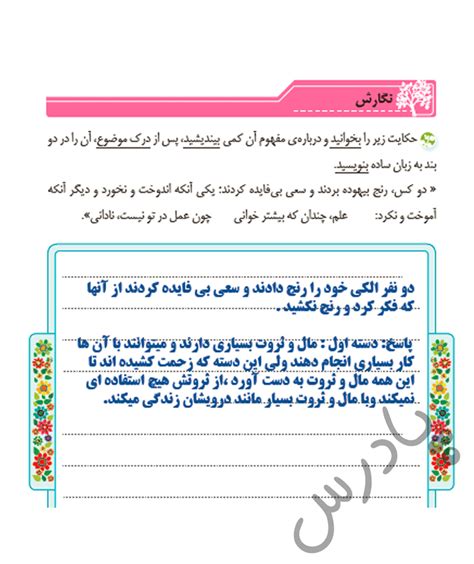 نگارش
حکایت زیر را بخوانید و درباره‌ی مفهوم آن کمی بیندیشید، پس از درک موضوع، آن را در دو
بند به زبان ساده بنویسید.
« دو کس، رنج بیهوده بردند و سعی بی‌فایده کردند: یکی آنکه اندوخت و نخورد و دیگر آنکه
آموخت و نکرد: علم، چندان که بیشتر خوانی چون عمل در تو نیست، نادانی».
دو نفر الکی خود را رنج دادند و سعی بی فایده کردند از آنها
که فکر کرد و رنج نکشید .
پاسخ: دسته اول : مال و ثروت بسیاری دارند و میتوانند با آن ها
کار بسیاری انجام دهند ولی این دسته که زحمت کشیده اند تا
این همه مال و ثروت به دست آورد ،از ثروتش هیچ استفاده ای
نمیکند وبا مال و ثروت بسیار مانند درویشان زندگی میکند.
پادرس